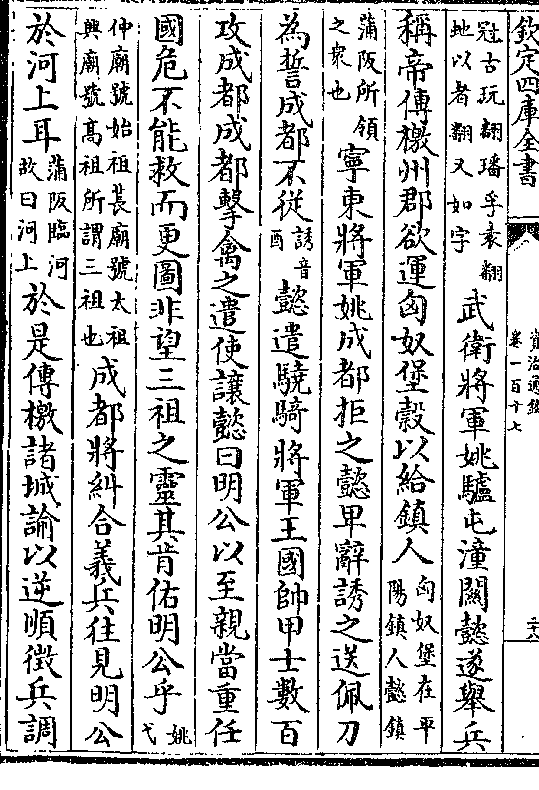 欽定四庫全書
資治通鑑
卷一百十七
冠古玩翻璠孚袁翻
以者翻又如字
武衛將軍姚驢屯潼關懿遂舉兵
稱帝傳檄州郡欲運匈奴堡穀以給鎮人
匈奴堡在平
陽鎮人懿鎮
蒲阪所領
之衆也
寧東將軍姚成都拒之懿卑辭誘之送佩刀
為誓成都不從
誘音
酉
懿遣驍騎將軍王國帥甲士數百
攻成都成都擊禽之遣使讓懿曰明公以至親當重任
國危不能救而更圖非望三祖之靈其肯佑明公乎
姚
弋
仲廟號始祖萇廟號太祖
興廟號髙祖所謂三祖也
成都將糾合義兵往見明公
於河上耳
蒲阪臨河
故曰河上
於是傳檄諸城諭以逆順徵兵調